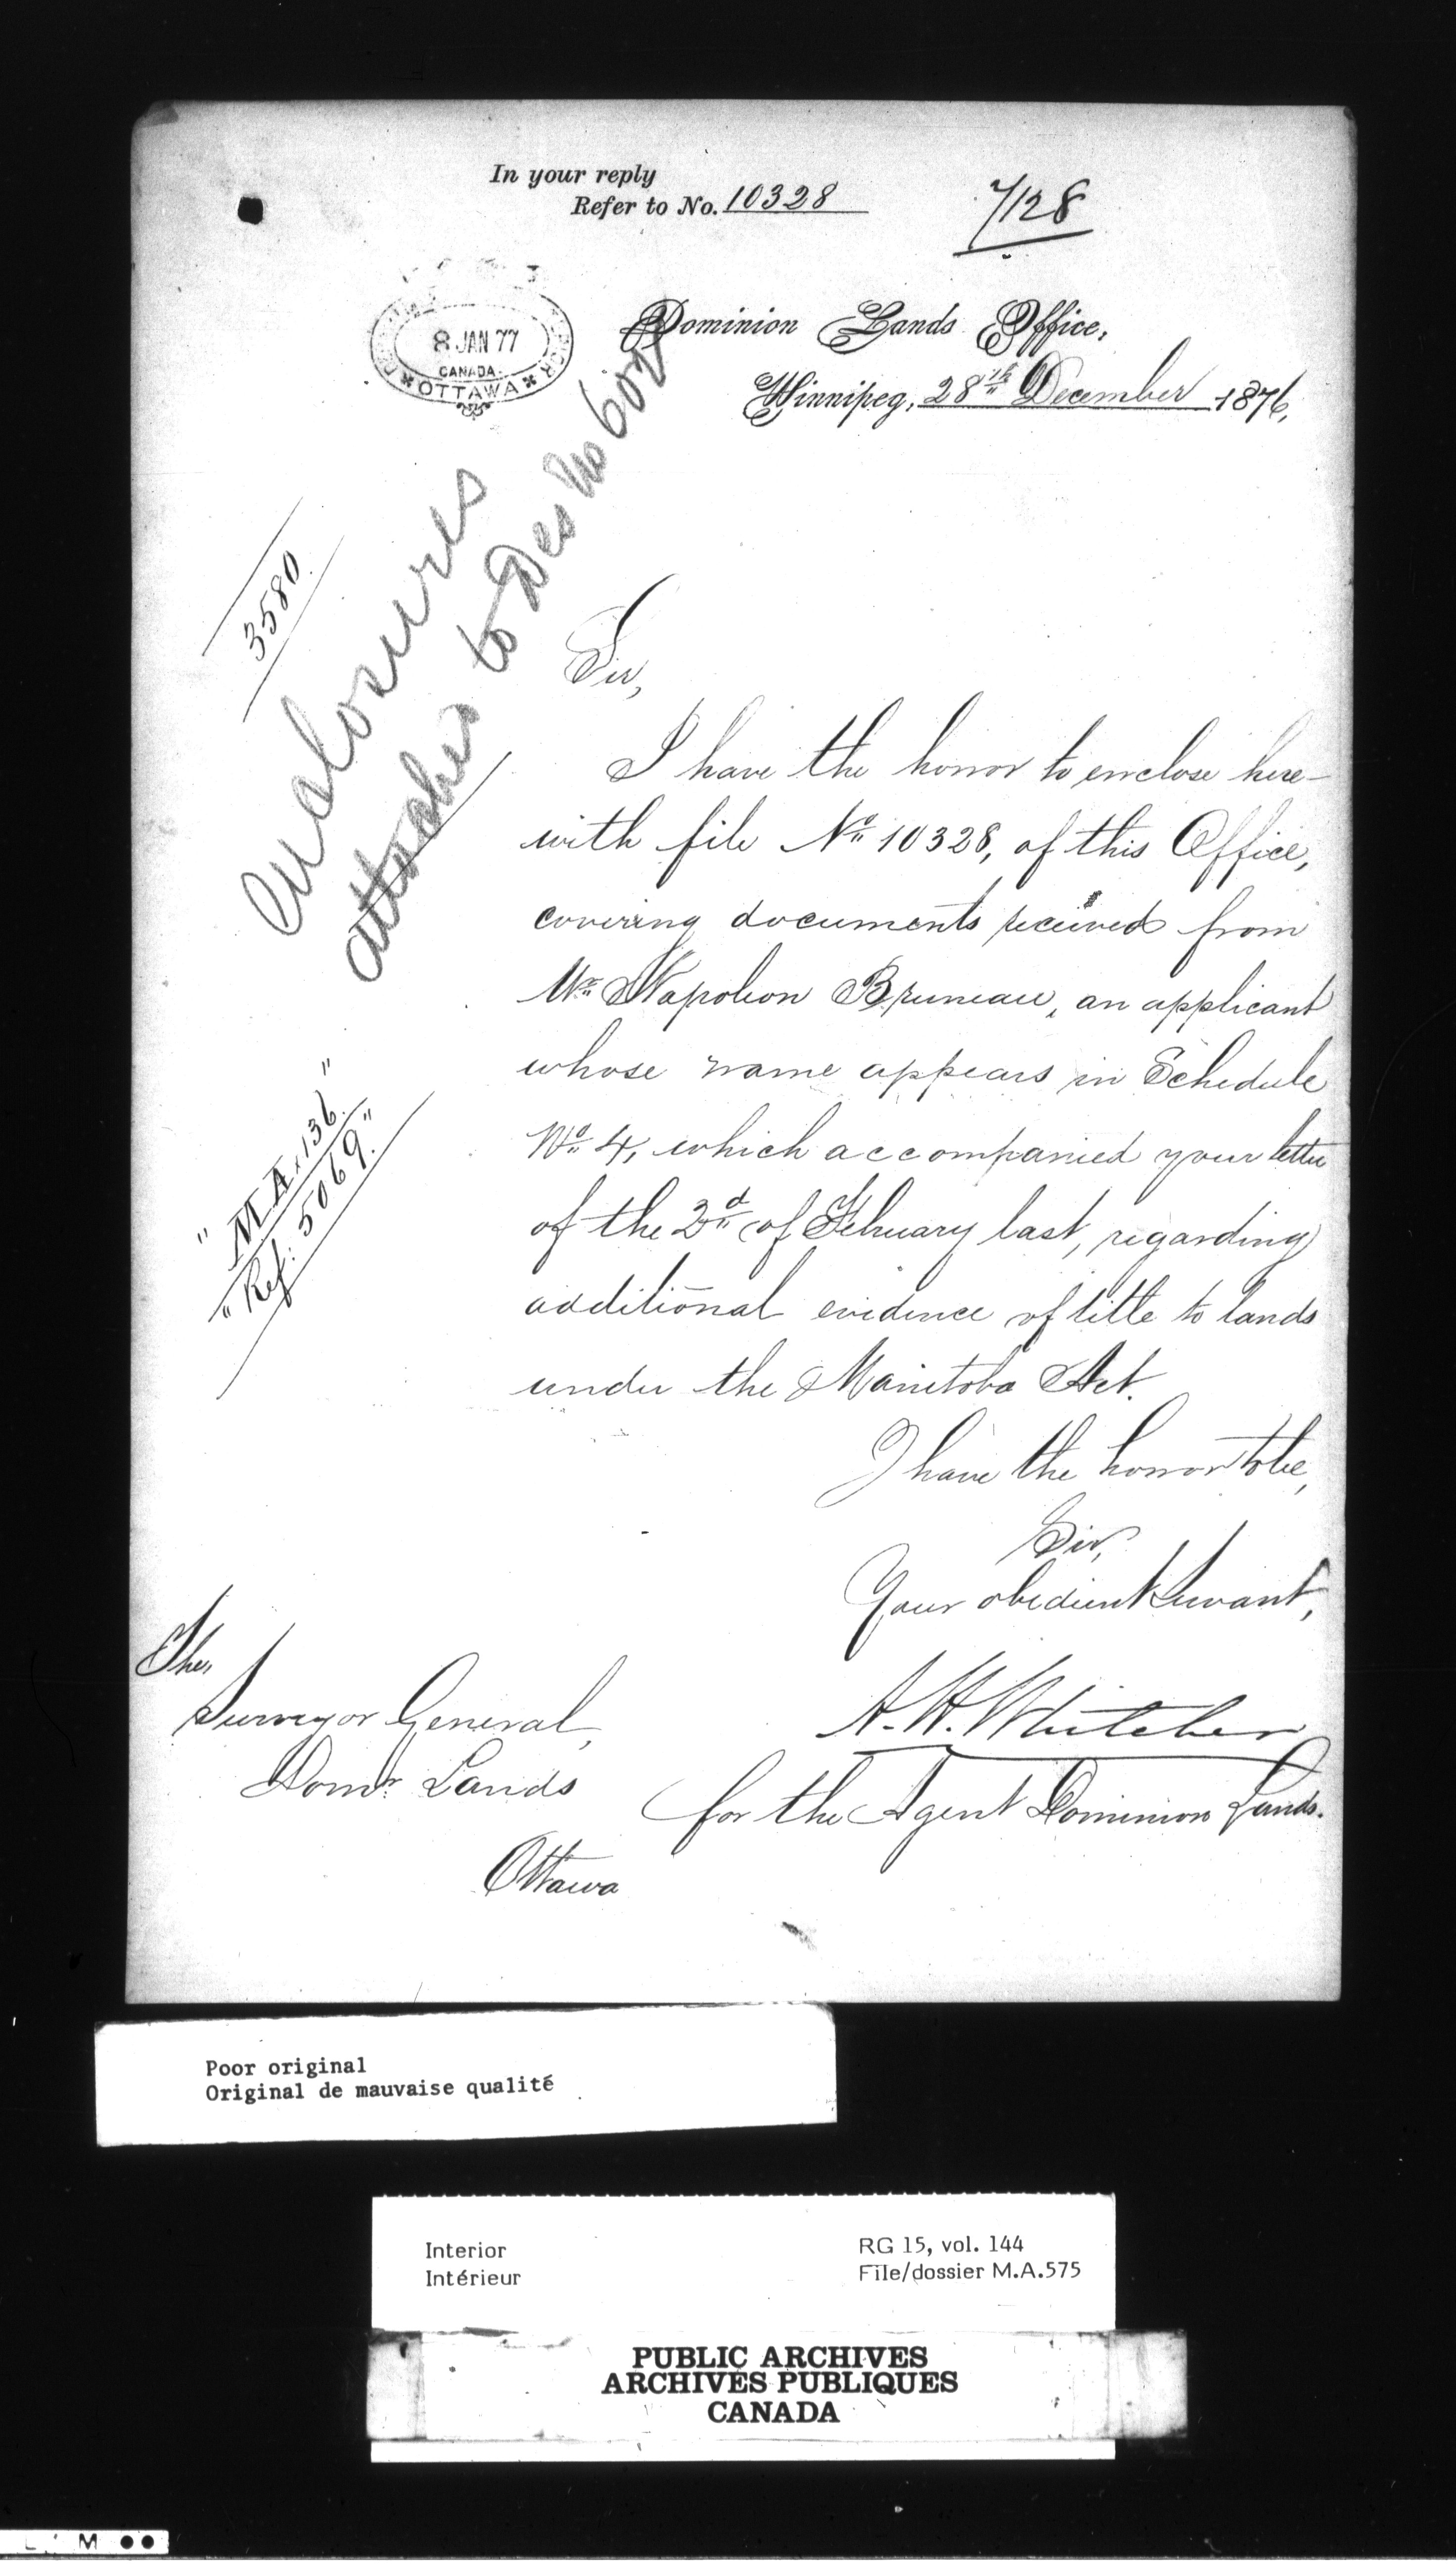 In your reply
Refer to No. 10328
7128
8 JAN 77
CANADA
OTTAWA
Dominion Lands Office,
Winnipeg, 28th December 1876,
3580.
Enclosures
attached to Des No
Sir,
I have the honor to enclose here-
with file No 10328, of this Office,
covering documents received from
Mr Napoleon Bruneau, an applicant
whose name appears in Schedule
No 4, which accompanied your letter
of the 2d of Febuary last, regarding
additional evidence of title to lands
under the Manitoba Act.
" M A. 136. "
" Ref: 5069. "
I have the honor to be,
Sir,
Your obedient Servant,
A. H. Whitcher
for the Agent Dominion Lands.
The,
Surveyor General,
Domn Lands
Ottawa
Poor original
Original de mauvaise qualité
Interior
Intérieur
RG 15, vol. 144
File/dossier M.A.575
PUBLIC ARCHIVES
ARCHIVES PUBLIQUES
CANADA
M